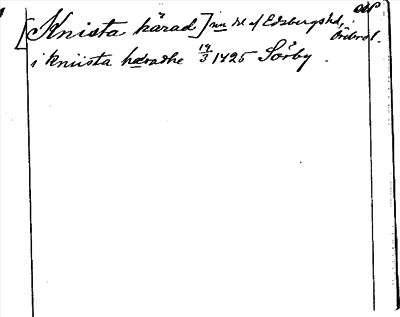 [Knista härad] nu del af Edsbergs hd, Örebro l.
i kniista hæradhe 19/3 1425 Sörby.